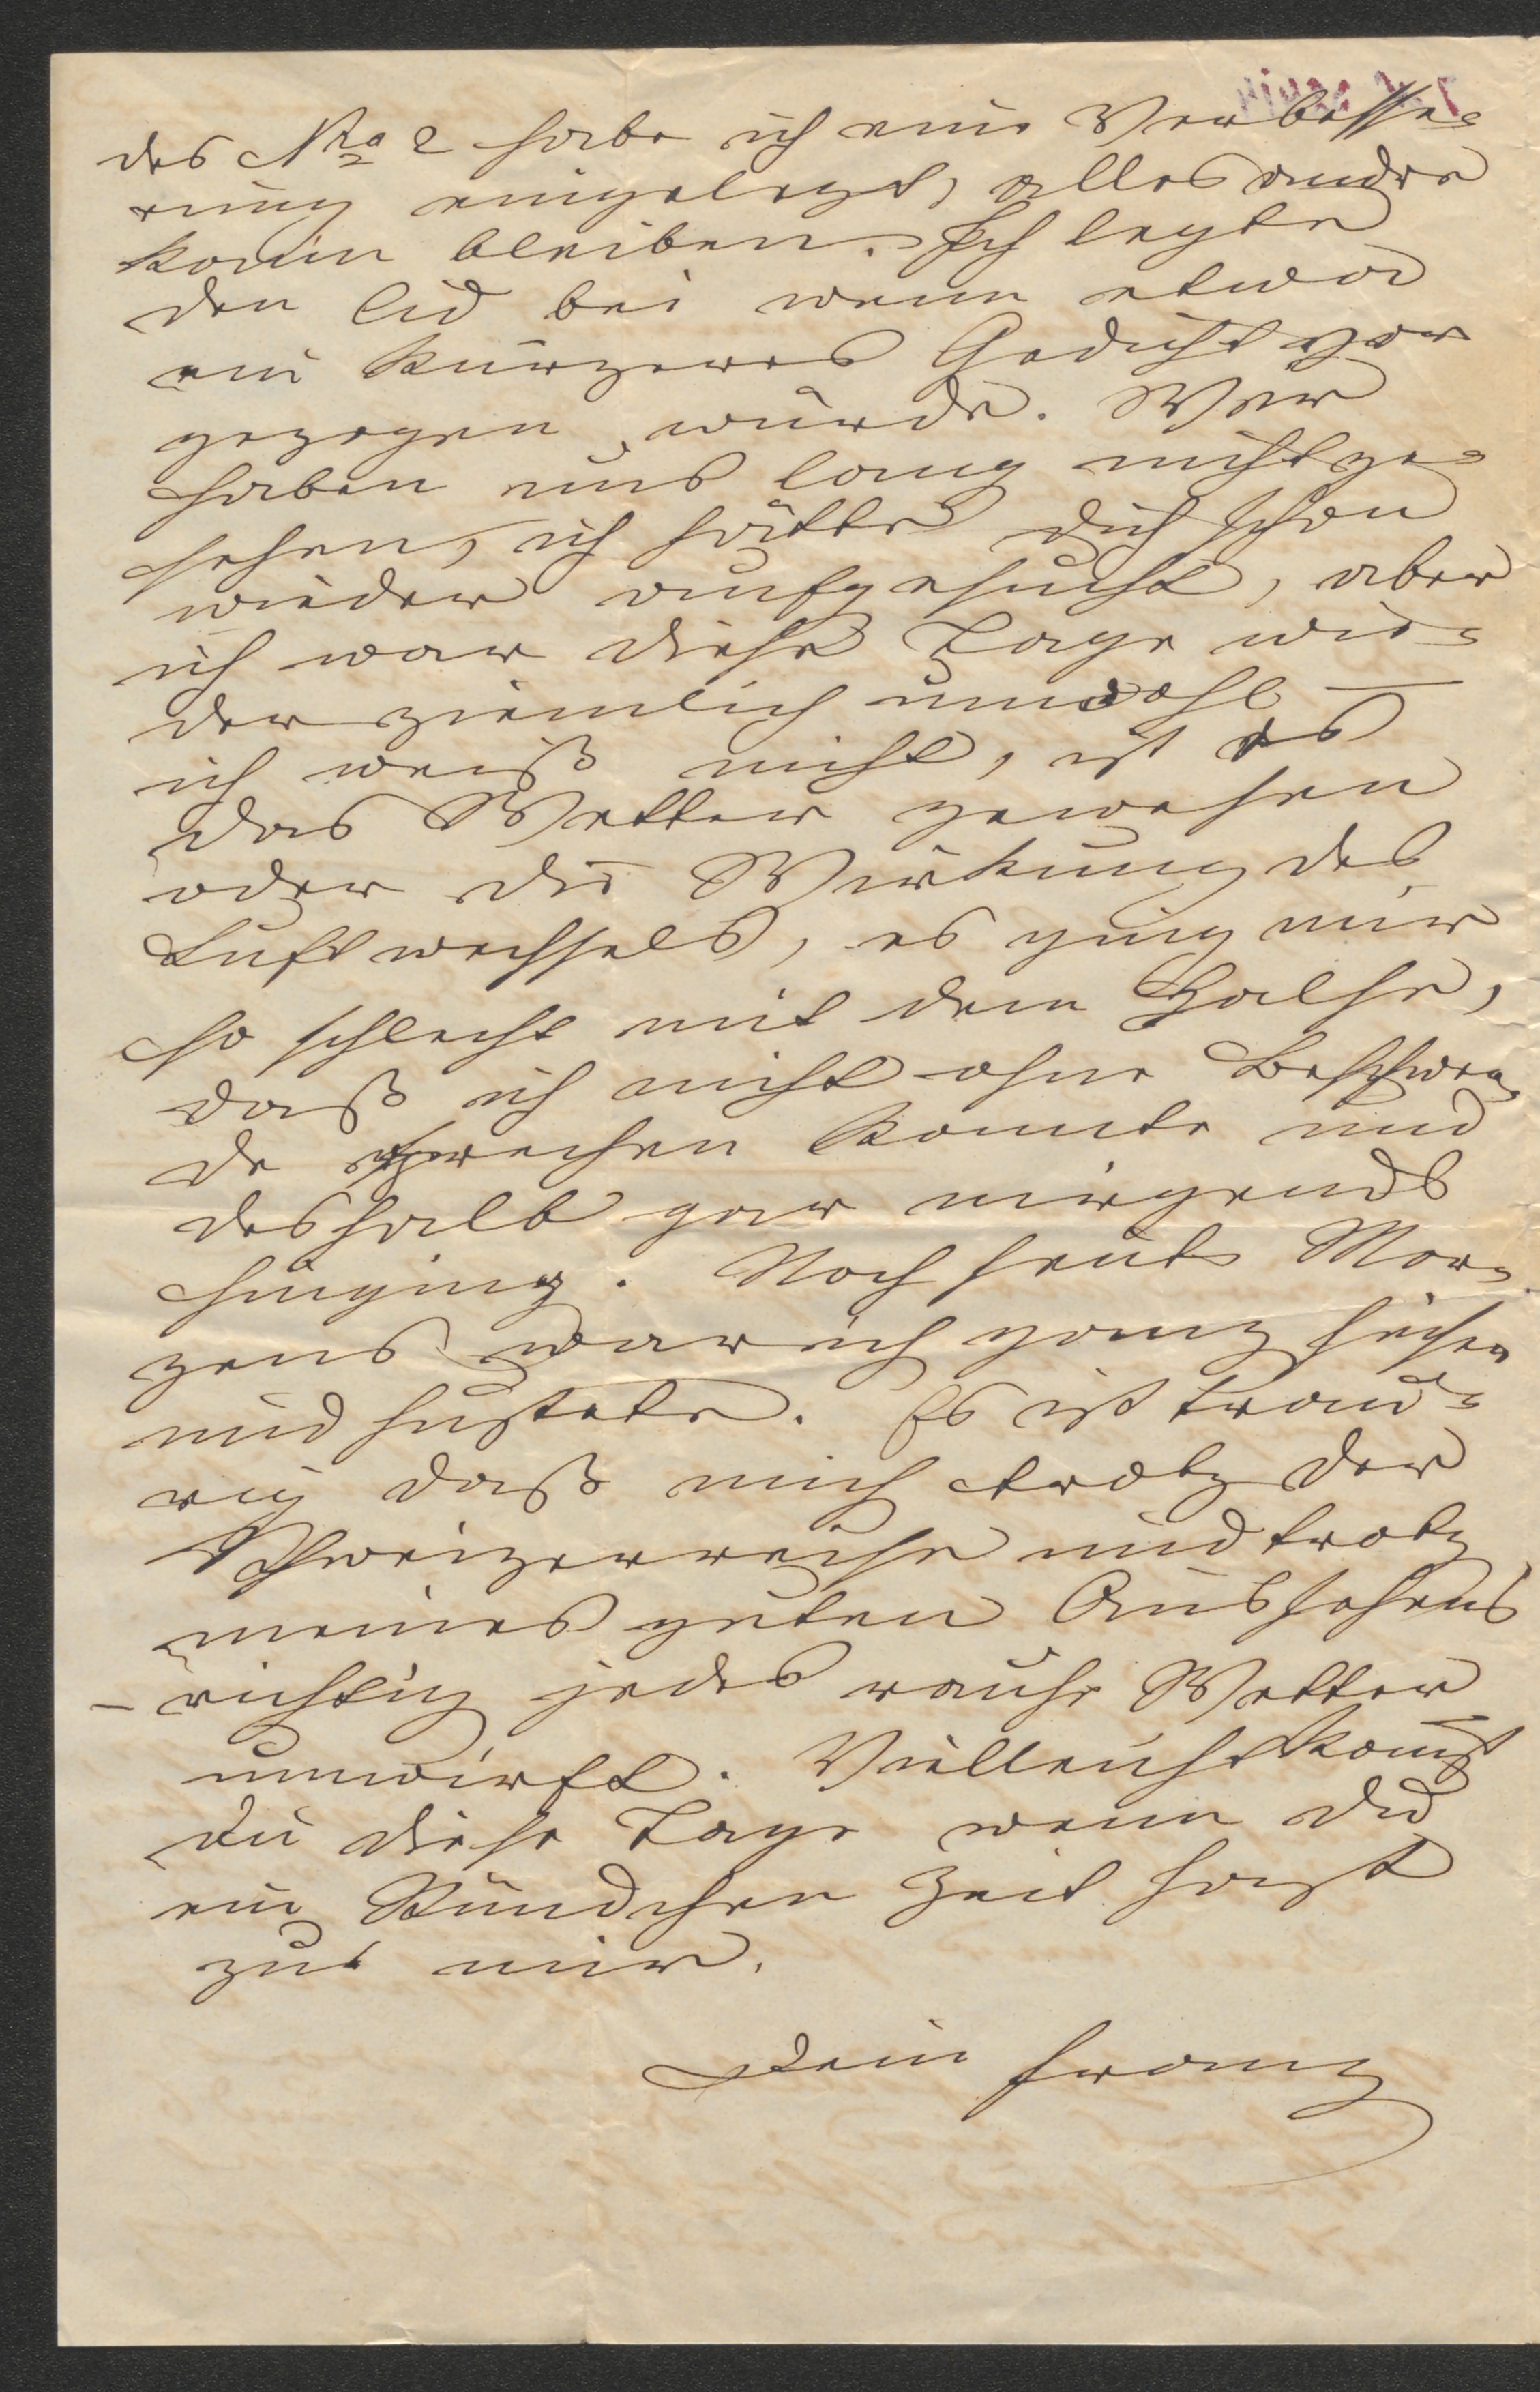 des No 2 habe ich eine Verbesse=
rung eingelegt, alles andre
kann bleiben. Ich legte
den Cid bei wenn etwa
ein kürzeres Gedicht vor
gezogen würde. Wir
haben uns lang nicht ge=
sehen, ich hätte dich schon
wieder aufgesucht, aber
ich war diese Tage wie=
der ziemlich unwohl —
ich weiß nicht, ist es
das Wetter gewesen
oder die Wirkung des
Luftwechsels, es ging mir
so schlecht mit dem Halse,
daß ich nicht ohne Beschwer
de sprechen konnte und
deshalb gar nirgends
hinging. Noch heute Mor=
gens war ich ganz heiser
und hustete. Es ist trau=
rig daß mich trotz der
Schweizerreise und trotz
meines guten Aussehens
– richtig jedes rauhe Wetter
umwirft. Vielleicht komst
du diese Tage wenn du
ein Stündchen Zeit hast
zu mir.
Dein Franz